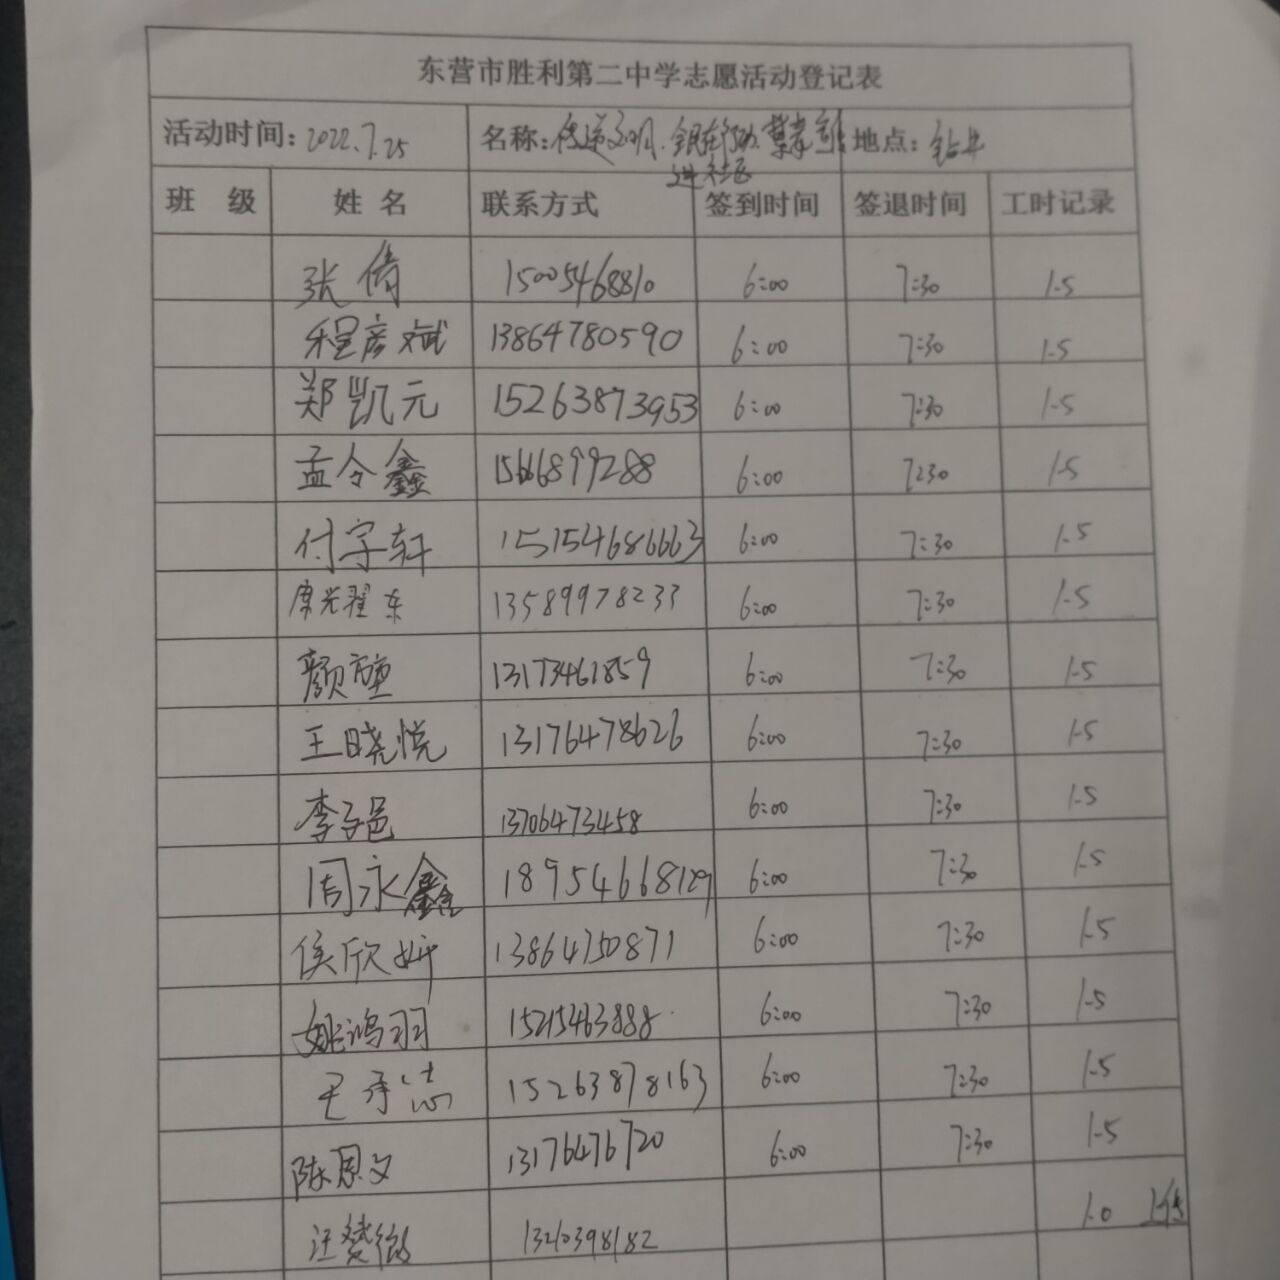 东营市胜利第二中学志愿活动登记表
活动时间：2022.7.25 名称：传递文明. 地点：钻井
进社区
班 级 姓 名 联系方式 签到时间 签退时间 工时记录
张倩 15005468810 6:00 7:30 1.5
程彦斌 13864780590 6:00 7:30 1.5
郑凯元 15263873953 6:00 7:30 1.5
孟令鑫 15666899288 6:00 7:30 1.5
付字轩 15154686663 6:00 7:30 1.5
光耀东 13589978233 6:00 7:30 1.5
颜 13173461859 6:00 7:30 1.5
王晓悦 13176478626 6:00 7:30 1.5
李子邑 13706473458 6:00 7:30 1.5
周永鑫 18954668129 6:00 7:30 1.5
侯欣妍 13864750871 6:00 7:30 1.5
姚鸿羽 15215463888 6:00 7:30 1.5
王承志 15263878163 6:00 7:30 1.5
陈恩文 13176476720 6:00 7:30 1.5
汪赞微 13210398182 1.0 上传